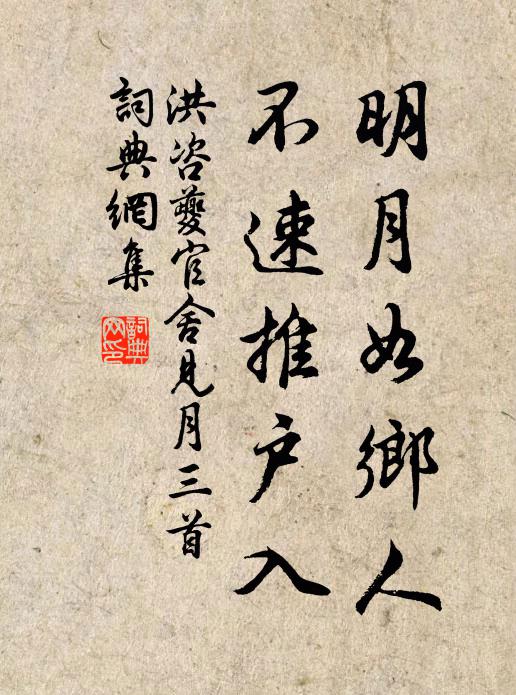 明月如鄉人
不速推户入
洪咨夔官舍見月三首
詞典網集
詞典網印